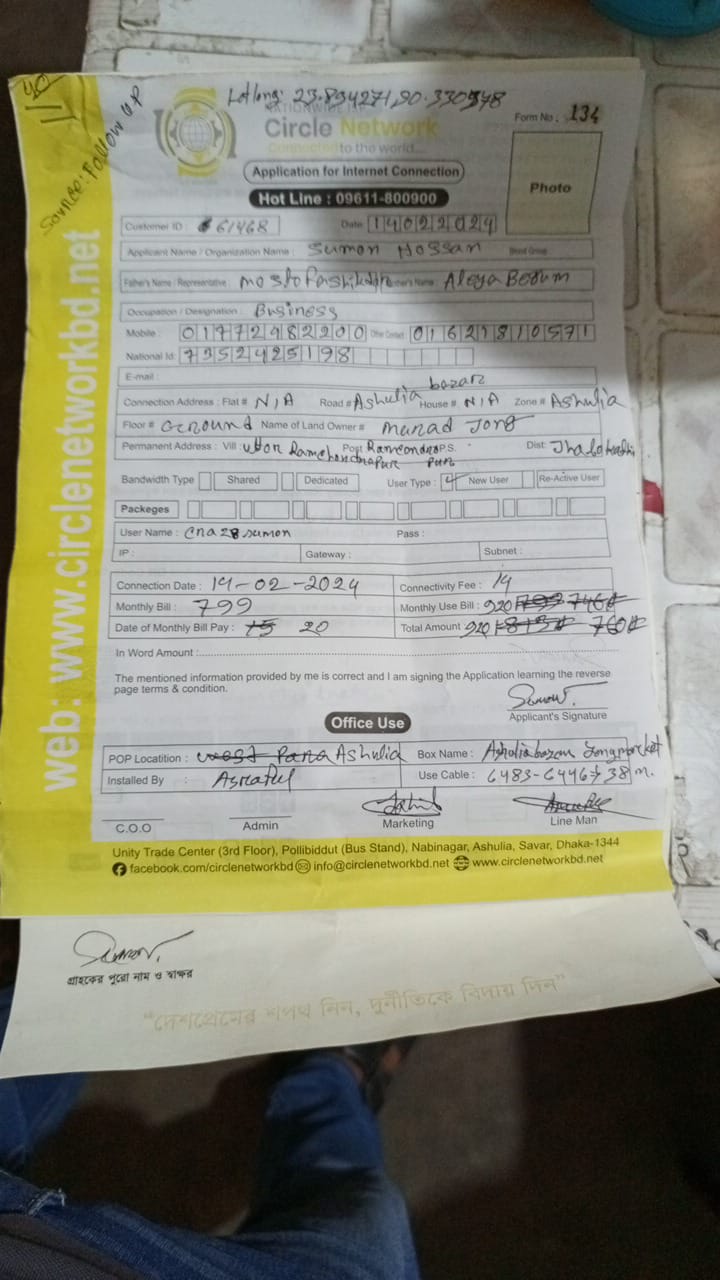 Source: Follow UP
Lat long: 23.894271,90.330578
Circle Network
Connected to the world...
Application for Internet Connection
Hot Line : 09611-800900
Form No : 134
Photo
Customer ID : 61468 Date 14022024
Applicant Name / Organization Name : Sumon Hossan Blood Group
Father's Name / Representative : Mother's Name : Aleya Begum
Occupation / Designation : Business
Mobile : 01772982200 Other Contact : 01621810571
National Id : 7352425198
E-mail :
Connection Address : Flat # N/A Road # Ashulia bazar House # N/A Zone # Ashulia
Floor # Ground Name of Land Owner # Murad Jong
Permanent Address : Vill : Uttor Ramchandrapur Post P.S. Dist:
Bandwidth Type Shared Dedicated User Type : New User Re-Active User
Packeges
User Name : cna28sumon Pass :
IP : Gateway : Subnet :
Connection Date : 14-02-2024 Connectivity Fee : 14
Monthly Bill : 799 Monthly Use Bill : 920 799 746
Date of Monthly Bill Pay : 15 20 Total Amount 920 813 760
In Word Amount :
The mentioned information provided by me is correct and I am signing the Application learning the reverse
page terms & condition.
Sumon.
Applicant's Signature
Office Use
POP Locatition : west Para Ashulia Box Name : Ashulia bazar Jong market
Installed By : Asraful Use Cable : 6483-6446 38 m.
C.O.O Admin Marketing Line Man
Unity Trade Center (3rd Floor), Pollibiddut (Bus Stand), Nabinagar, Ashulia, Savar, Dhaka-1344
facebook.com/circlenetworkbd info@circlenetworkbd.net www.circlenetworkbd.net
web: www.circlenetworkbd.net
Sumon.
গ্রাহকের পুরো নাম ও স্বাক্ষর
“দেশপ্রেমের শপথ নিন, দুর্নীতিকে বিদায় দিন”